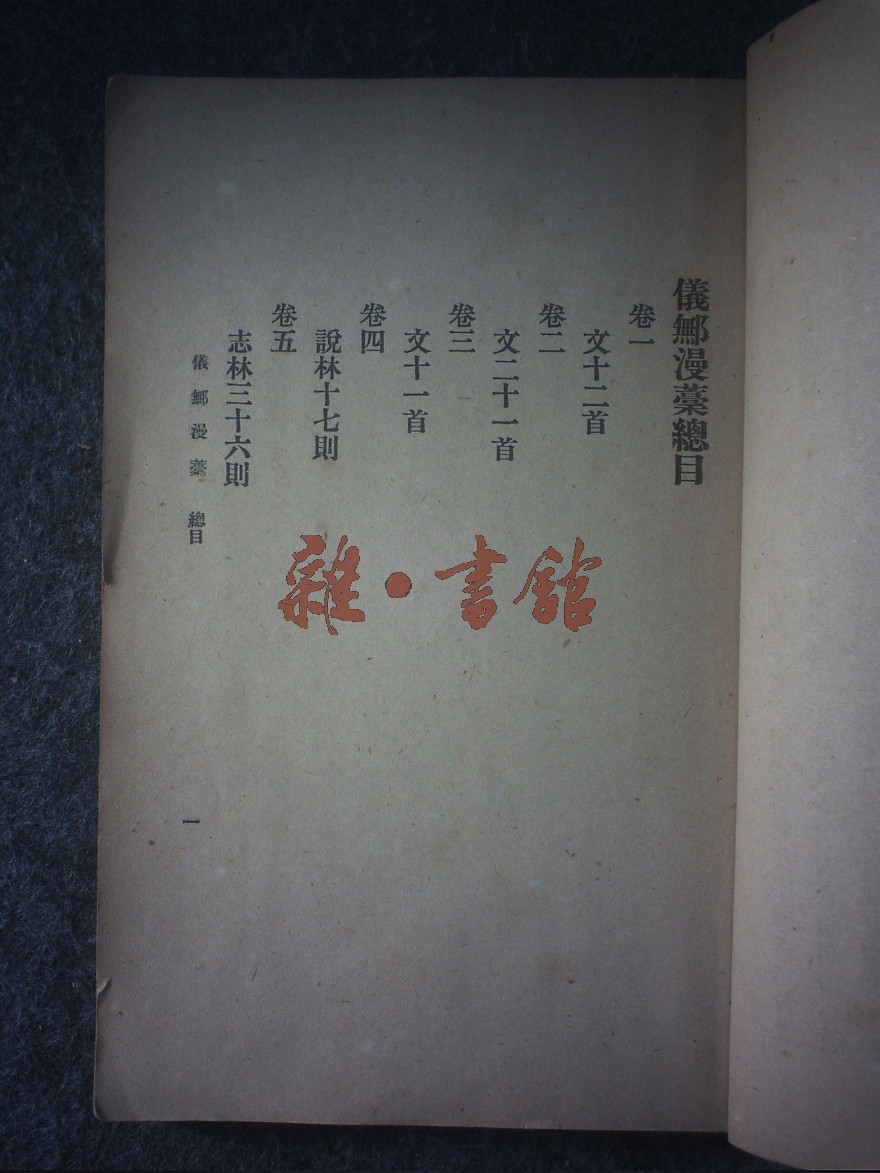 儀鄦漫藳總目
卷一
文十二首
卷二
文二十一首
卷三
文十一首
卷四
說林十七則
卷五
志林三十六則
儀鄦漫藳 總目
一
雜·書館